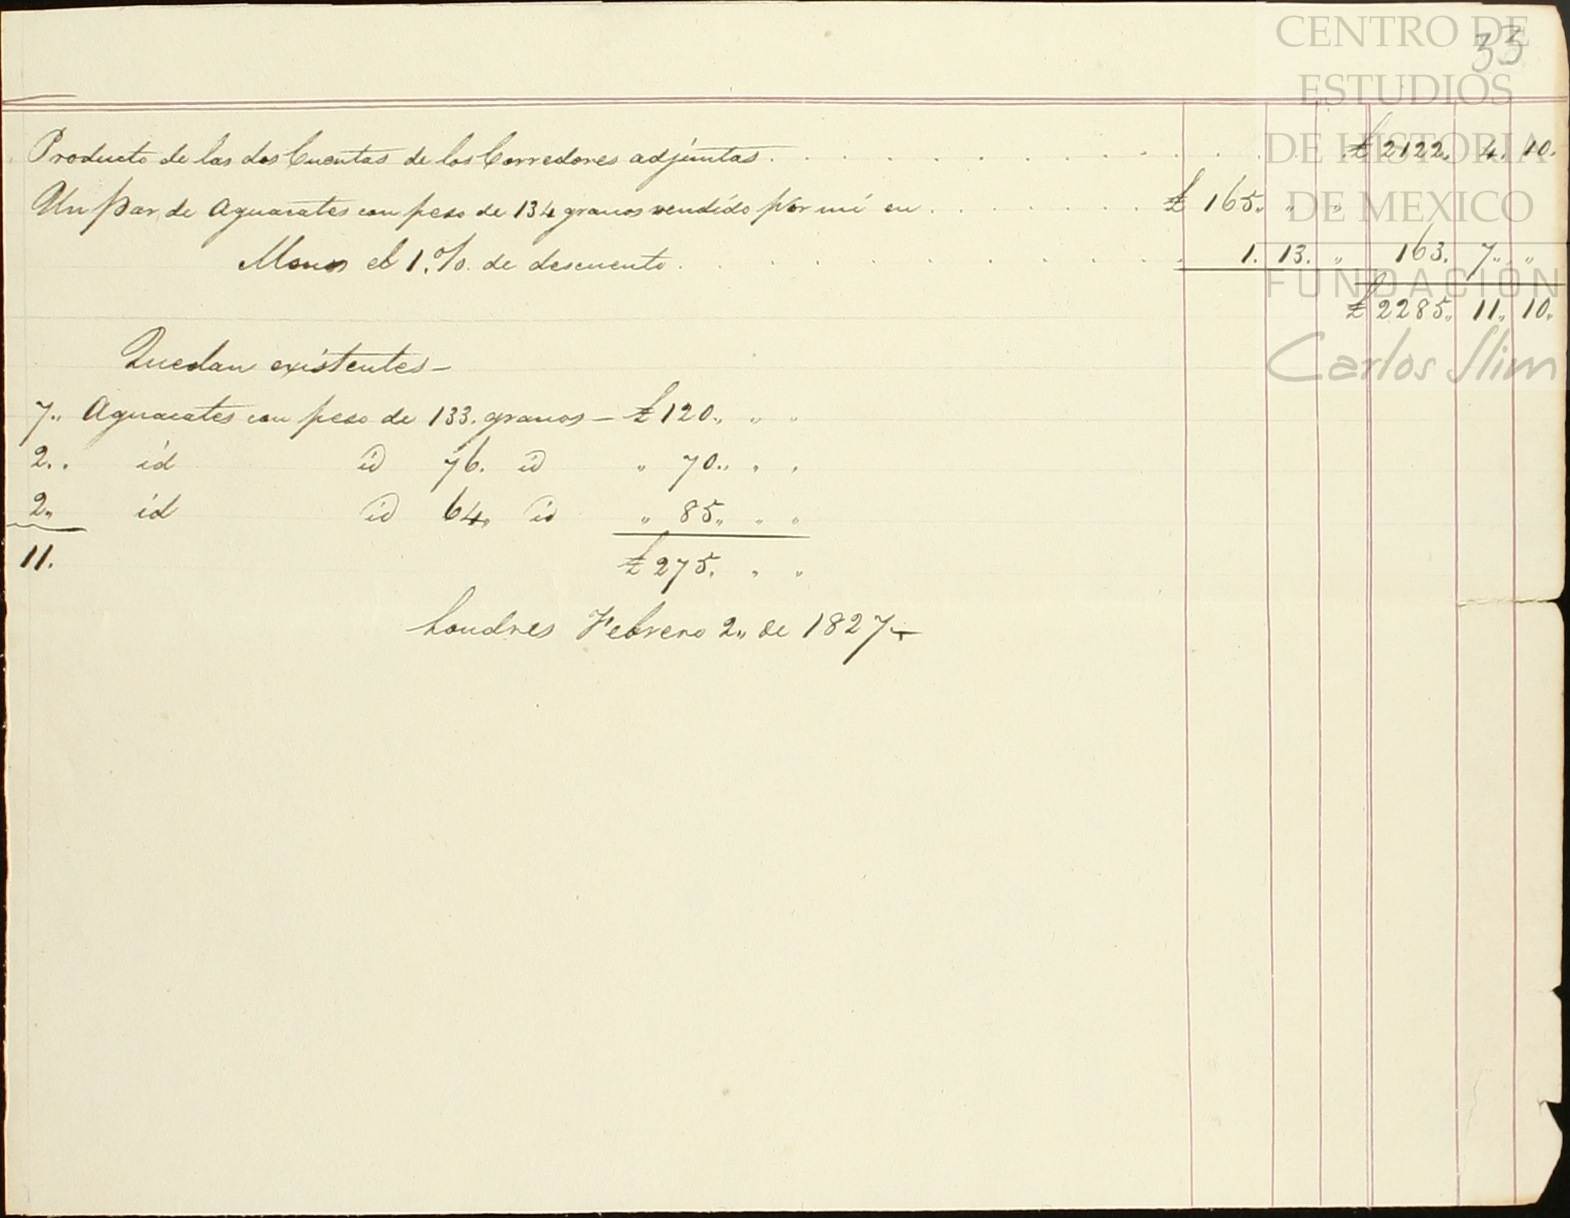 CENTRO DE
ESTUDIOS
DE HISTORIA
DE MEXICO
FUNDACIÓN
Carlos Slim
33
Producto de las dos Cuentas de los Corredores adjuntas . . . . . . . . . . . . £ 2122,, 4,, 10.
Un par de Aguacates con peso de 134 granos vendido por mi en . . . . . . £ 165,, ,, ,,
Menos el 1.%. de descuento . . . . . . . . . . . 1. 13. ,, 163. 7,, ,,
£ 2285,, 11,, 10,,
Quedan existentes—
7,, Aguacates con peso de 133. granos — £ 120,, ,, ,,
2,, id id 76. id ,, 70,, ,, ,,
2,, id id 64,, id ,, 85,, ,, ,,
11. £ 275. ,, ,,
Londres Febrero 2,, de 1827.—